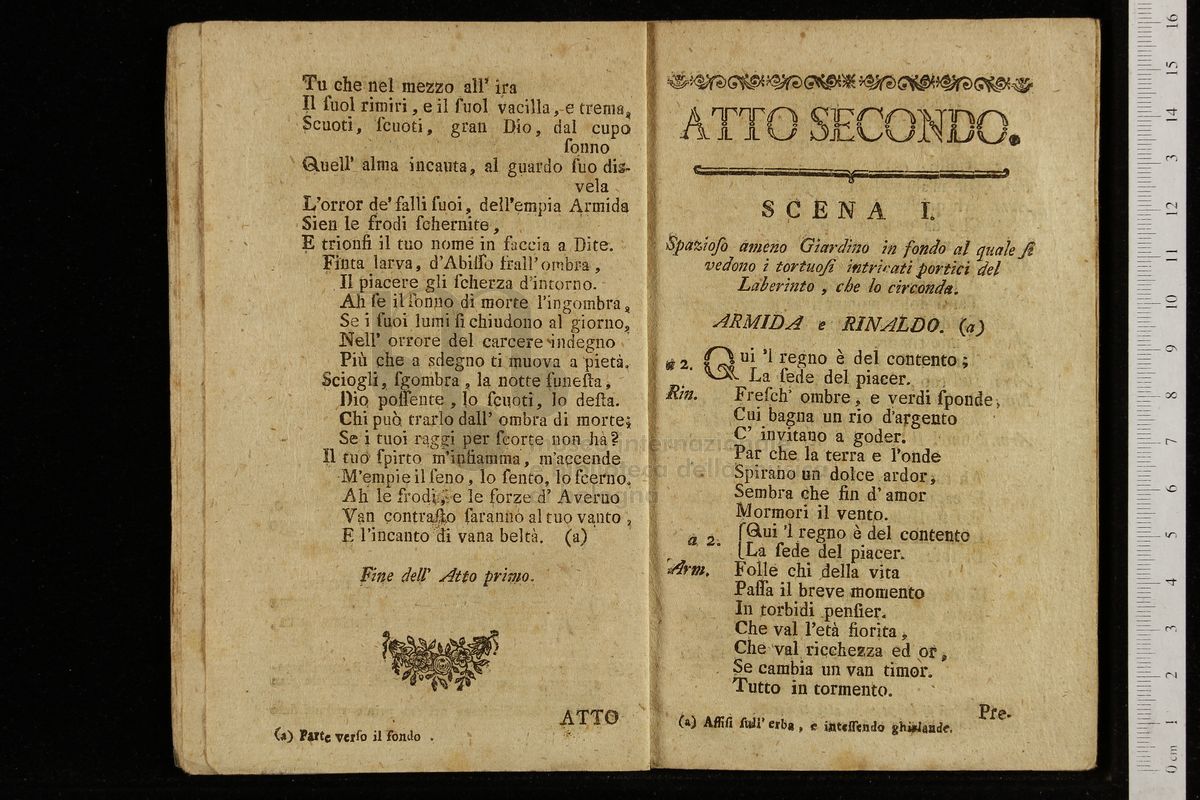 Tu che nel mezzo all' ira
Il ſuol rimiri, e il ſuol vacilla, e trema,
Scuoti, ſcuoti, gran Dio, dal cupo
ſonno
Quell' alma incauta, al guardo ſuo dis-
vela
L'orror de' falli ſuoi, dell'empia Armida
Sien le frodi ſchernite,
E trionfi il tuo nome in faccia a Dite.
Finta larva, d'Abiſſo frall'ombra,
Il piacere gli ſcherza d'intorno.
Ah ſe il ſonno di morte l'ingombra,
Se i ſuoi lumi ſi chiudono al giorno,
Nell' orrore del carcere indegno
Più che a sdegno ti muova a pietà.
Sciogli, ſgombra, la notte funeſta,
Dio poſſente, lo ſcuoti, lo deſta.
Chi può trarlo dall' ombra di morte;
Se i tuoi raggi per ſcorte non hà?
Il tuo ſpirto m'infiamma, m'accende
M'empie il ſeno, lo ſento, lo ſcerno.
Ah le frodi, e le forze d' Averno
Van contraſto faranno al tuo vanto,
E l'incanto di vana beltà. (a)
Fine dell' Atto primo.
ATTO
(a) Parte verſo il fondo.
ATTO SECONDO.
SCENA I.
Spazioſo ameno Giardino in fondo al quale ſi
vedono i tortuoſi intricati portici del
Laberinto, che lo circonda.
ARMIDA e RINALDO. (a)
a 2. Qui 'l regno è del contento;
La ſede del piacer.
Rin. Freſch' ombre, e verdi ſponde,
Cui bagna un rio d'argento
C' invitano a goder.
Par che la terra e l'onde
Spirano un dolce ardor,
Sembra che fin d' amor
Mormori il vento.
a 2. Qui 'l regno è del contento
La ſede del piacer.
Arm. Folle chi della vita
Paſſa il breve momento
In torbidi penſier.
Che val l'età fiorita,
Che val ricchezza ed or,
Se cambia un van timor.
Tutto in tormento.
Pre-
(a) Aſſiſi ſull' erba, e inteſſendo ghirlande.